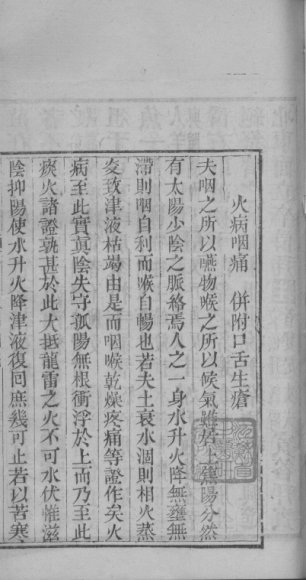 火病咽痛 併附口舌生瘡
夫咽之所以嚥物喉之所以候氣雖若上焦陽分然
有太陽少陰之脈絡焉人之一身水升火降無壅無
滯則咽自利而喉自暢也若夫土衰水涸則相火蒸
炎致津液枯竭由是而咽喉乾燥疼痛等證作矣火
病至此實眞陰失守孤陽無根衝浮於上而乃至此
痰火諸證孰甚於此大抵龍雷之火不可水伏惟滋
陰抑陽使水升火降津液復回庶幾可止若以苦寒